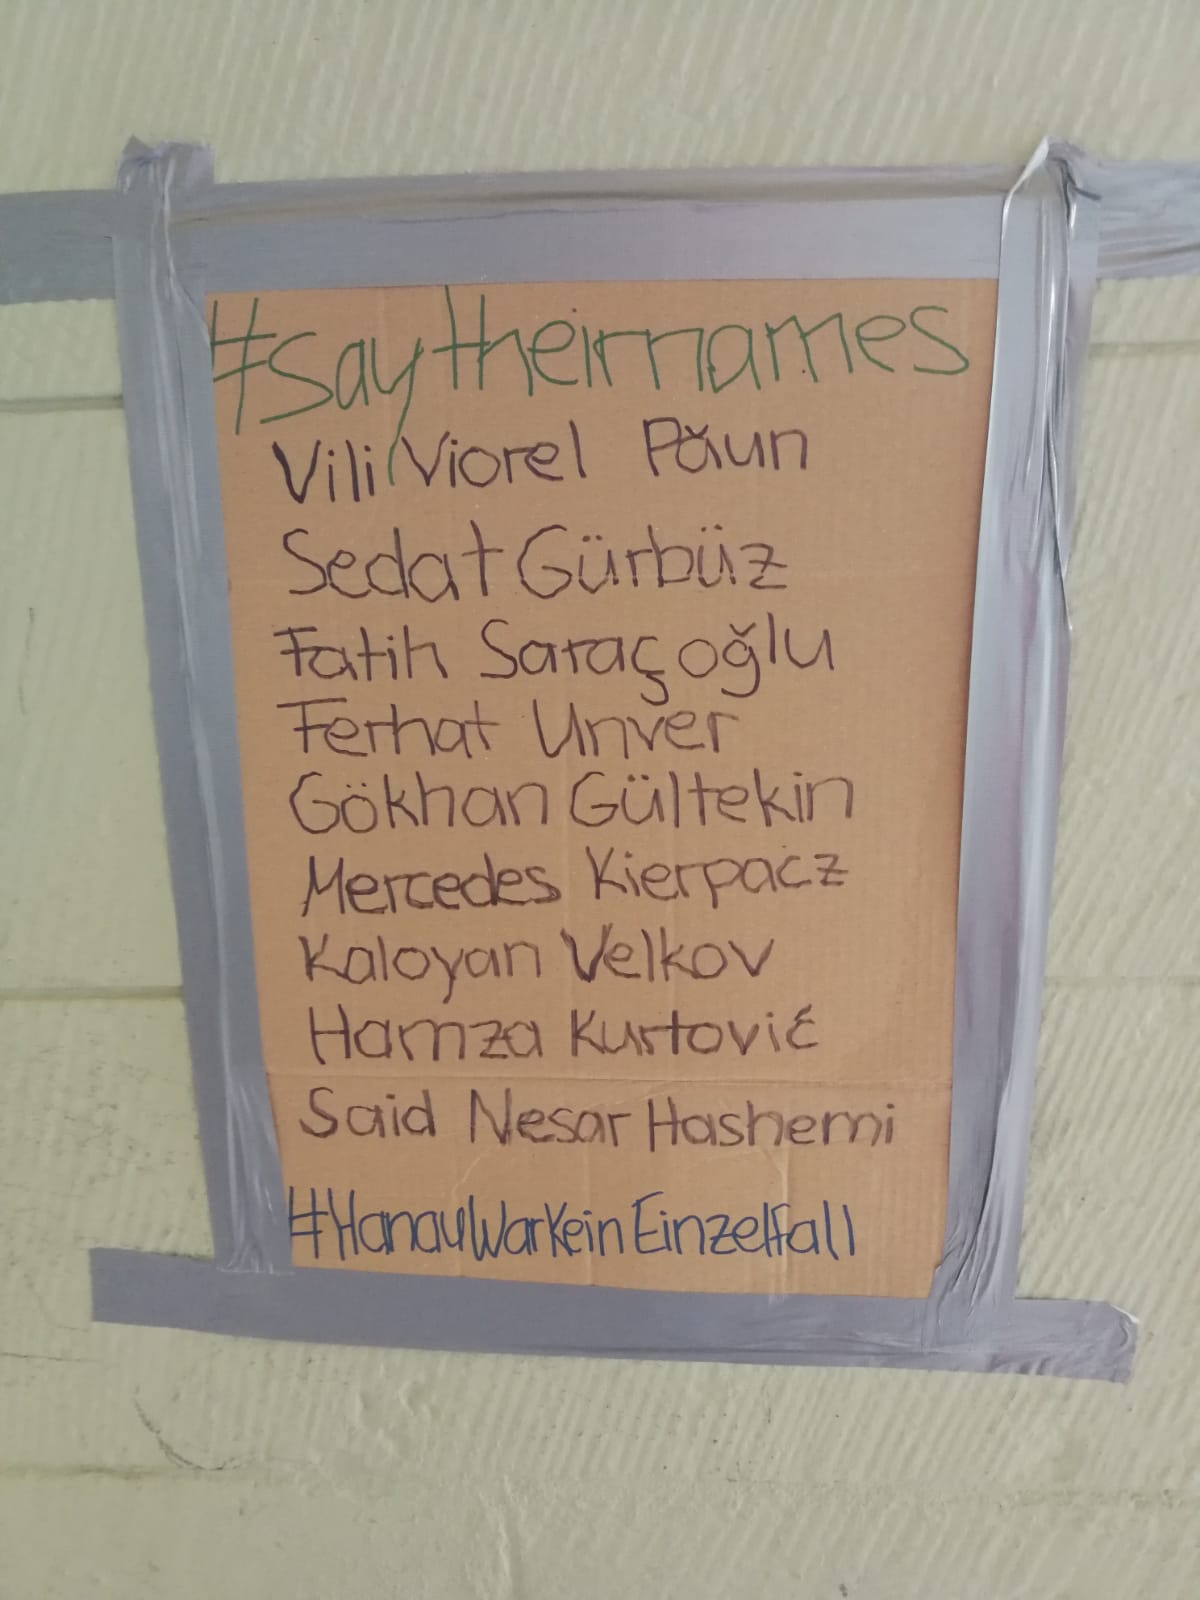 #saytheirnames
Vili Viorel Păun
Sedat Gürbüz
Fatih Saraçoğlu
Ferhat Unver
Gökhan Gültekin
Mercedes Kierpacz
Kaloyan Velkov
Hamza Kurtović
Said Nesar Hashemi
#HanauWarKeinEinzelfall